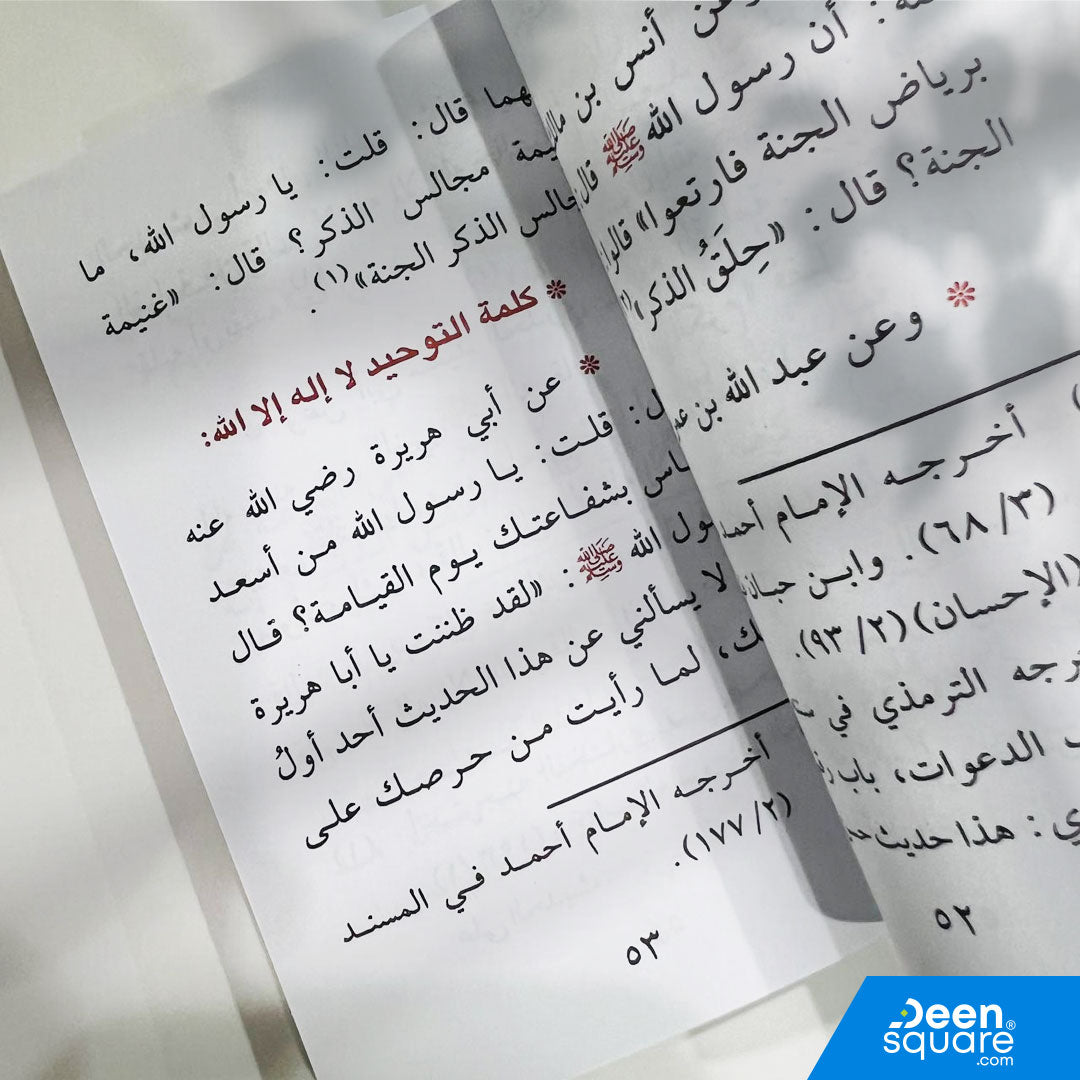 أنس بن
: أن رسول الله ﷺ قال
برياض الجنة فارتعوا» قالوا
الجنة؟ قال: «حِلَقُ الذكر»
* وعن عبد الله بن
أخرجه الإمام أحمد
(٦٨/٣). وابن حبان
(الإحسان) (٩٣/٢).
الترمذي في
الدعوات، باب
: هذا حديث
٥٢
قال: قلت: يا رسول الله، ما
مجالس الذكر؟ قال: «غنيمة
الذكر الجنة»(١).
* كلمة التوحيد لا إله إلا الله:
* عن أبي هريرة رضي الله عنه
: قلت: يا رسول الله من أسعد
بشفاعتك يوم القيامة؟ قال
الله ﷺ: «لقد ظننت يا أبا هريرة
لا يسألني عن هذا الحديث أحد أولُ
، لما رأيت من حرصك على
أخرجه الإمام أحمد في المسند
(١٧٧/٢).
٥٣
Deen®
square
.com